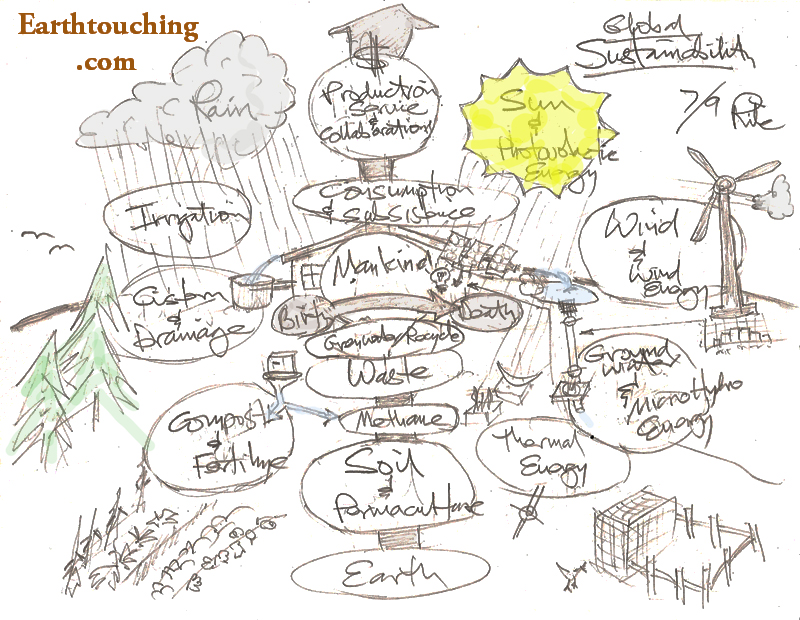 Earthtouching
.com
Global
Sustainability
7/9
Rain
$
Production
Service
&
Collaborations
Sun
&
Photovoltaic
Energy
Consumption
& Subsistence
Irrigation
Wind
&
Wind
Energy
Mankind
Cistern
&
Drainage
Birth
Death
Greywater/Recycle
Waste
Ground
Water
&
MicroHydro
Energy
Compost
&
Fertilize
Methane
Thermal
Energy
Soil
&
Permaculture
Earth